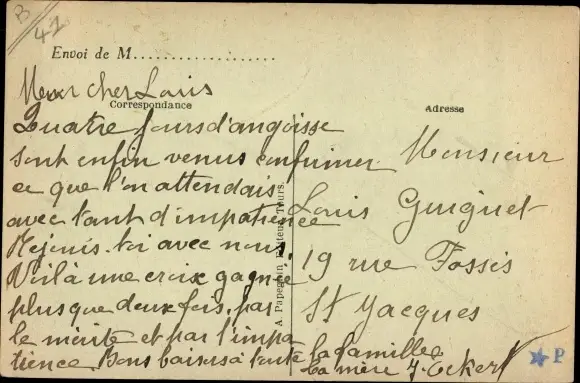 B
41
Envoi de M....................
Mon cher Louis
Correspondance
Quatre jours d'angoisse
sont enfin venus confirmer
ce que l'on attendais
avec tant d'impatience
Réjouis-toi avec nous.
Voilà une croix gagnée
plus que deux fois, par
le mérite et par l'impa
tience Bons baisers à toute la famille
La mère J. Eckert
A. Papeghin, Editeur, Tours.
Adresse
Monsieur
Louis Guignet
19 rue Fossés
St Jacques
P